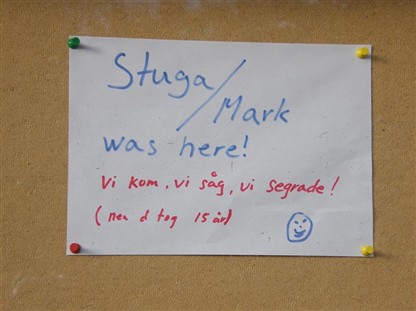 Stuga/
Mark
was here!
Vi kom, vi såg, vi segrade!
(men d tog 15 år)